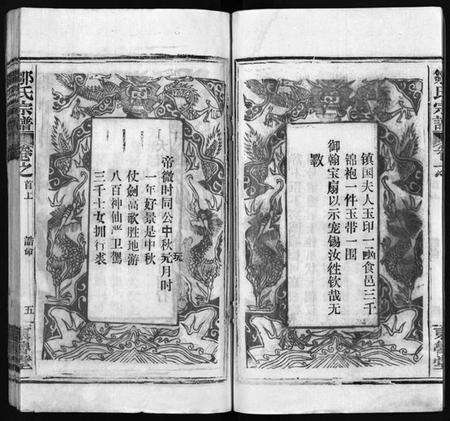 镇国夫人玉印一凾食邑三千
锦袍一件玉带一围
御翰宝扇以示宠锡汝往钦哉无
斁
帝微时同公中秋玩月时
一年好景是中秋
仗劍高歌胜地游
八百神仙严卫駕
三千士女拥行裘
鄒氏宗譜
卷之
首上
誥命
五
鄒氏宗譜